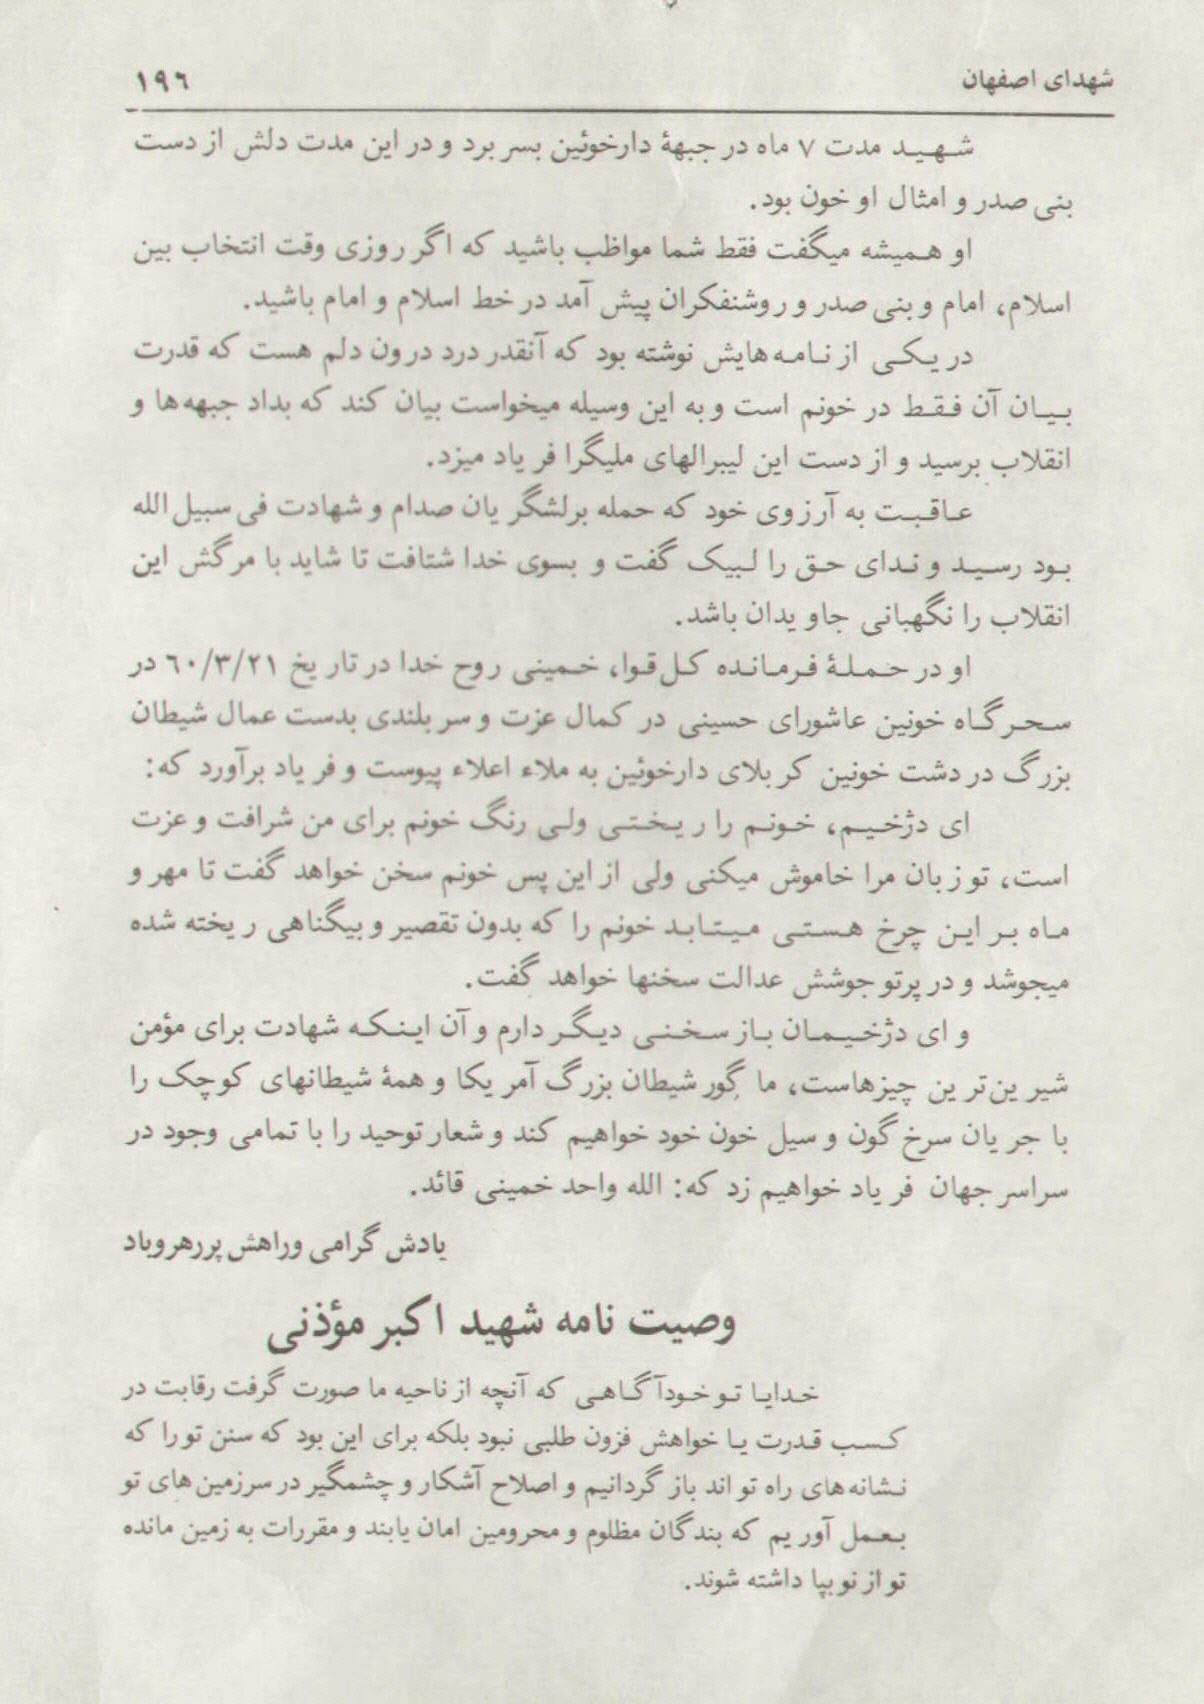 شهدای اصفهان
۱۹۶
شهید مدت ۷ ماه در جبههٔ دارخوئین بسر برد و در این مدت دلش از دست
بنی صدر و امثال او خون بود.
او همیشه میگفت فقط شما مواظب باشید که اگر روزی وقت انتخاب بین
اسلام، امام و بنی صدر و روشنفکران پیش آمد در خط اسلام و امام باشید.
در یکی از نامه‌هایش نوشته بود که آنقدر درد درون دلم هست که قدرت
بیان آن فقط در خونم است و به این وسیله میخواست بیان کند که بداد جبهه‌ها و
انقلاب برسید و از دست این لیبرالهای ملیگرا فریاد میزد.
عاقبت به آرزوی خود که حمله برلشگریان صدام و شهادت فی سبیل الله
بود رسید و ندای حق را لبیک گفت و بسوی خدا شتافت تا شاید با مرگش این
انقلاب را نگهبانی جاویدان باشد.
او در حملهٔ فرمانده کل قوا، خمینی روح خدا در تاریخ ۶۰/۳/۲۱ در
سحرگاه خونین عاشورای حسینی در کمال عزت و سربلندی بدست عمال شیطان
بزرگ در دشت خونین کربلای دارخوئین به ملاء اعلاء پیوست و فریاد برآورد که:
ای دژخیم، خونم را ریختی ولی رنگ خونم برای من شرافت و عزت
است، تو زبان مرا خاموش میکنی ولی از این پس خونم سخن خواهد گفت تا مهر و
ماه بر این چرخ هستی میتابد خونم را که بدون تقصیر و بیگناهی ریخته شده
میجوشد و در پرتو جوشش عدالت سخنها خواهد گفت.
و ای دژخیمان باز سخنی دیگر دارم و آن اینکه شهادت برای مؤمن
شیرین‌ترین چیزهاست، ما گور شیطان بزرگ آمریکا و همهٔ شیطانهای کوچک را
با جریان سرخ گون و سیل خون خود خواهیم کند و شعار توحید را با تمامی وجود در
سراسر جهان فریاد خواهیم زد که: الله واحد خمینی قائد.
یادش گرامی وراهش پررهروباد
وصیت نامه شهید اکبر مؤذنی
خدایا تو خودآگاهی که آنچه از ناحیه ما صورت گرفت رقابت در
کسب قدرت یا خواهش فزون طلبی نبود بلکه برای این بود که سنن تو را که
نشانه‌های راه تو اند باز گردانیم و اصلاح آشکار و چشمگیر در سرزمین‌های تو
بعمل آوریم که بندگان مظلوم و محرومین امان یابند و مقررات به زمین مانده
تو از نو بپا داشته شوند.